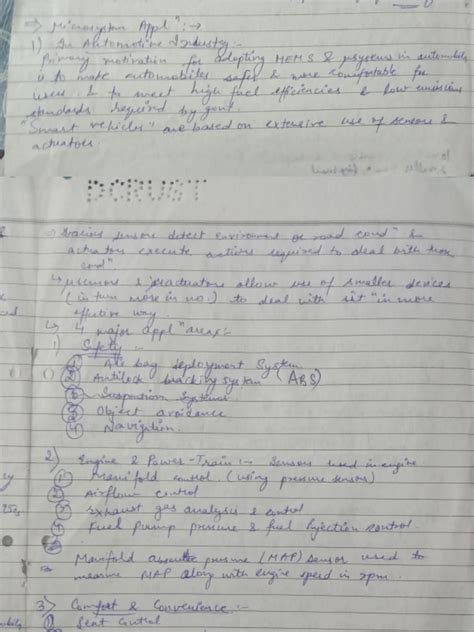 ⇒ Microsystem Appl":→
1) In Automotive Industry:-
Primary motivation for adopting MEMS & μsystems in automobile
is to make automobiles safer & more comfortable for
users & to meet high fuel efficiencies & low emissions
standards required by govt.
"Smart vehicles" are based on extensive use of sensors &
actuators.
DCRUST
→ Various sensors detect environment or road cond" &
actuators execute actions required to deal with
cond"
↳ μsensors & μactuators allow use of smaller devices
(in turn more in no.) to deal with sit" in more
effective way.
↳ 4 major appl" areas:-
1) Safety:-
① Air bag deployment System
② Antilock bracking system (ABS)
Suspension Systems
③ Object avoidence
④ Navigation.
2) Engine & Power-Train:- Sensors used in engine
① Manifold control (using pressure sensors)
② Airflow control
③ Exhaust gas analysis & control
Fuel Pump pressure & fuel Injection control.
Manifold pressure (MAP) sensor used to
measure MAP along with engine speed in rpm.
3) Comfort & Convenience:-
① Seat Control